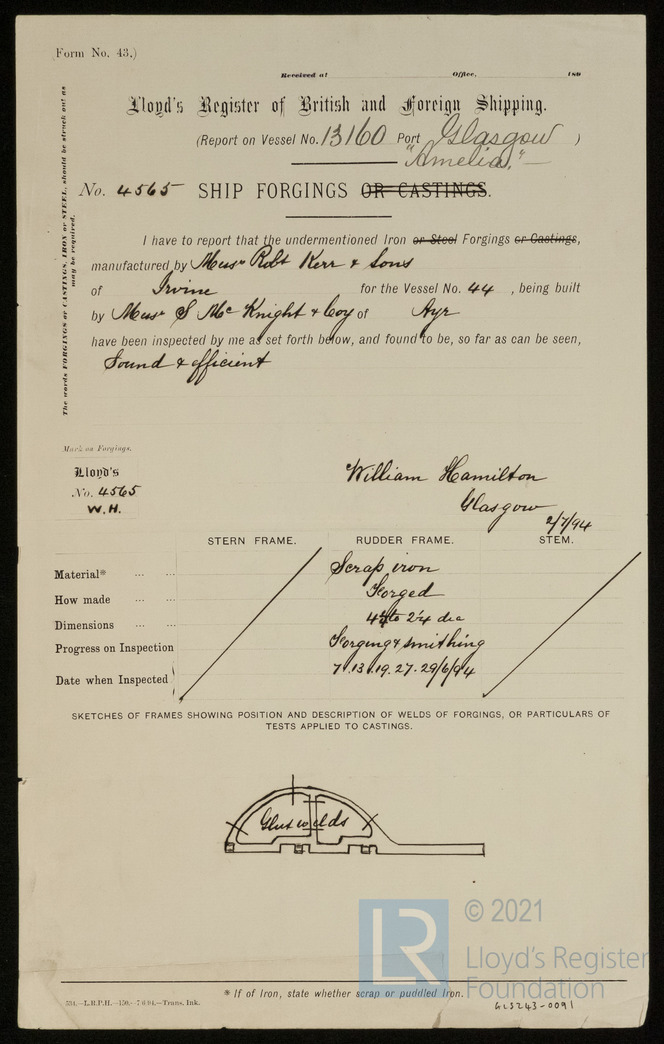 (Form No. 43.)
Received at Office, 189
Lloyd's Register of British and Foreign Shipping.
(Report on Vessel No. 13160 Port Glasgow )
"Amelia."
No. 4565 SHIP FORGINGS OR CASTINGS.
The words FORGINGS or CASTINGS, IRON or STEEL, should be struck out as
may be required.
I have to report that the undermentioned Iron or Steel Forgings or Castings,
manufactured by Messrs Robt Kerr & Sons
of Irvine for the Vessel No. 44, being built
by Messrs S Mc Knight & Coy of Ayr
have been inspected by me as set forth below, and found to be, so far as can be seen,
Sound & efficient
Mark on Forgings.
Lloyd's
No. 4565
W.H.
William Hamilton
Glasgow
2/7/94
STERN FRAME. RUDDER FRAME. STEM.
Material* ... ... Scrap iron
How made ... ... Forged
Dimensions ... ... to 2¼ dia
Progress on Inspection Forging & smithing
Date when Inspected 7.13.19.27.29/6/94
SKETCHES OF FRAMES SHOWING POSITION AND DESCRIPTION OF WELDS OF FORGINGS, OR PARTICULARS OF
TESTS APPLIED TO CASTINGS.
Glut welds
© 2021
LR Lloyd's Register
Foundation
* If of Iron, state whether scrap or puddled Iron.
534.—L.R.P.H.—150.—7/6/94.—Trans. Ink.
GLS243-0091